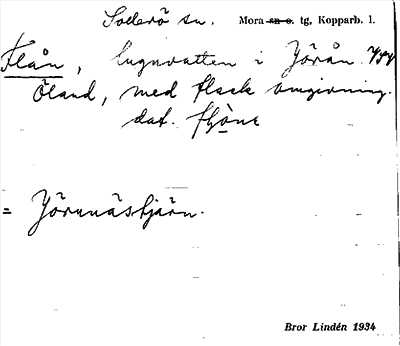 Sollerö sn. Mora sn o. tg, Kopparb. l.
Flån, lugnvatten i Jörån
Öland, med flack omgivning.
dat.
= Jörunästjärn.
Bror Lindén 1934